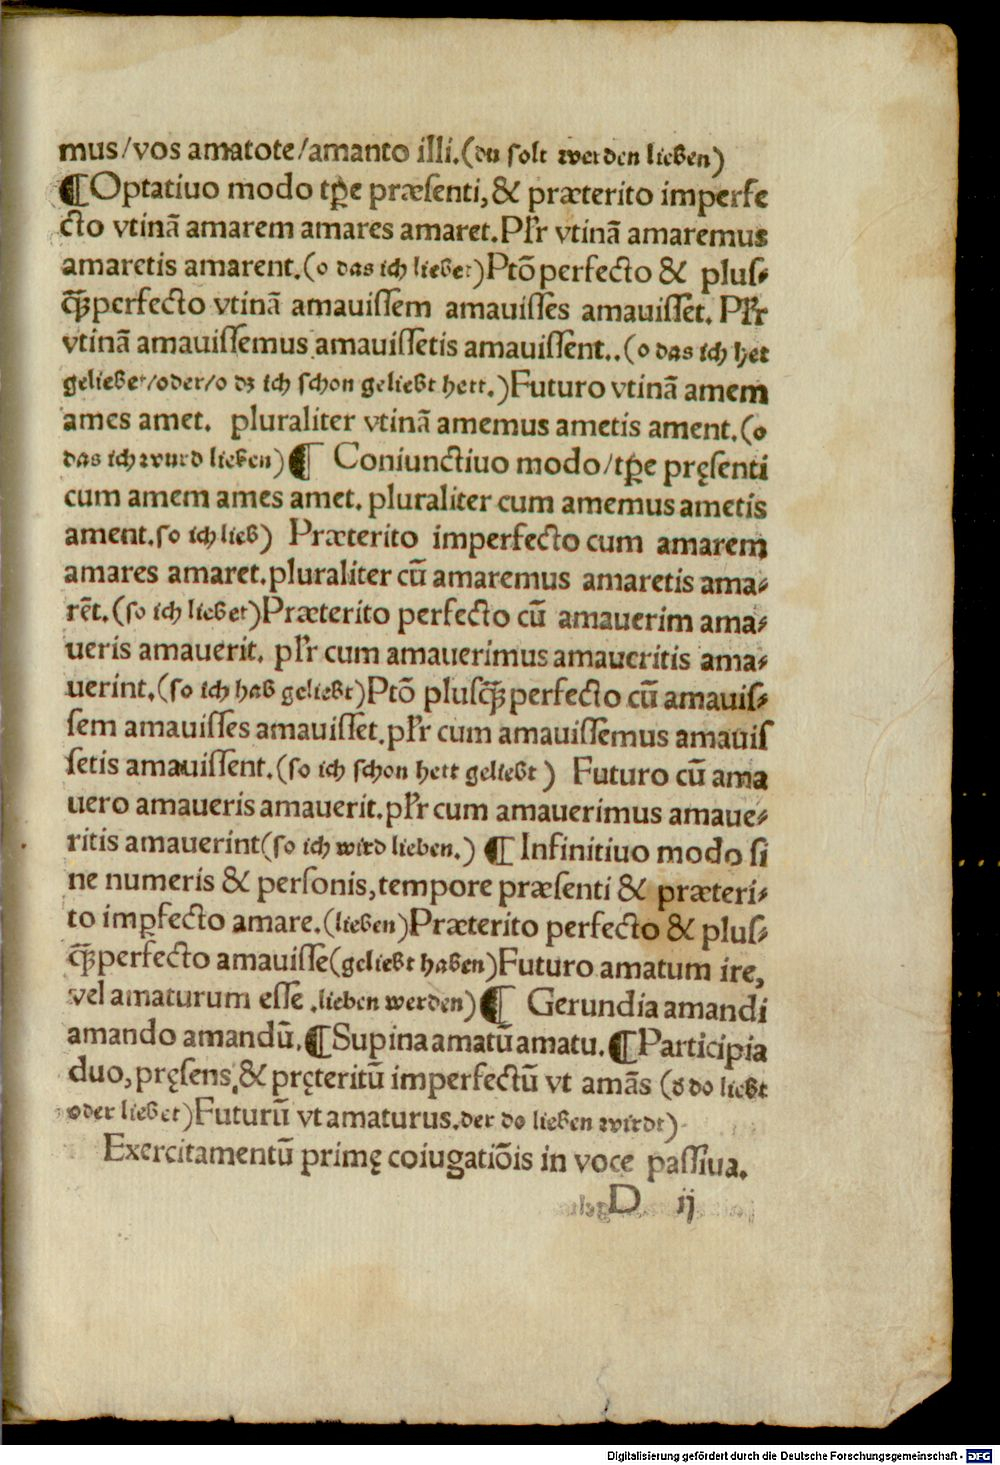 mus/vos amatote/amanto illi.(du solt werden lieben)
¶Optatiuo modo tp̄e præsenti,& præterito imperfe
cto vtinā amarem amares amaret.Pl̄r vtinā amaremus
amaretis amarent.(o das ich liebet)Ptō perfecto & plus⸗
q̄perfecto vtinā amauissem amauisses amauisset. Pl̄r
vtinā amauissemus amauissetis amauissent..(o das ich het
geliebet/oder/o dz ich schon geliebt hett.)Futuro vtinā amem
ames amet. pluraliter vtinā amemus ametis ament.(o
das ich wurd lieben)¶ Coniunctiuo modo/tp̄e pręsenti
cum amem ames amet. pluraliter cum amemus ametis
ament.so ich lieb) Præterito imperfecto cum amarem
amares amaret.pluraliter cū amaremus amaretis ama⸗
rēt.(so ich liebet)Præterito perfecto cū amauerim ama⸗
ueris amauerit. pl̄r cum amauerimus amaueritis ama⸗
uerint.(so ich hab geliebt)Ptō plusq̄perfecto cū amauis⸗
sem amauisses amauisset.pl̄r cum amauissemus amauis
setis amauissent.(so ich schon hett geliebt) Futuro cū ama
uero amaueris amauerit.pl̄r cum amauerimus amaue⸗
ritis amauerint(so ich wird lieben.) ¶Infinitiuo modo si
ne numeris & personis,tempore præsenti & præteri⸗
to imꝑfecto amare.(lieben)Præterito perfecto & plus⸗
q̄perfecto amauisse(geliebt haben)Futuro amatum ire,
vel amaturum esse .lieben werden)¶ Gerundia amandi
amando amandū.¶Supina amatū amatu.¶Participia
duo,pręsens,& pręteritū imperfectū vt amās (d do liebt
oder liebet)Futurū vt amaturus.der do lieben wirdt)
Exercitamentū primę coiugatiōis in voce passiua.
D ij
Digitalisierung gefördert durch die Deutsche Forschungsgemeinschaft - DFG